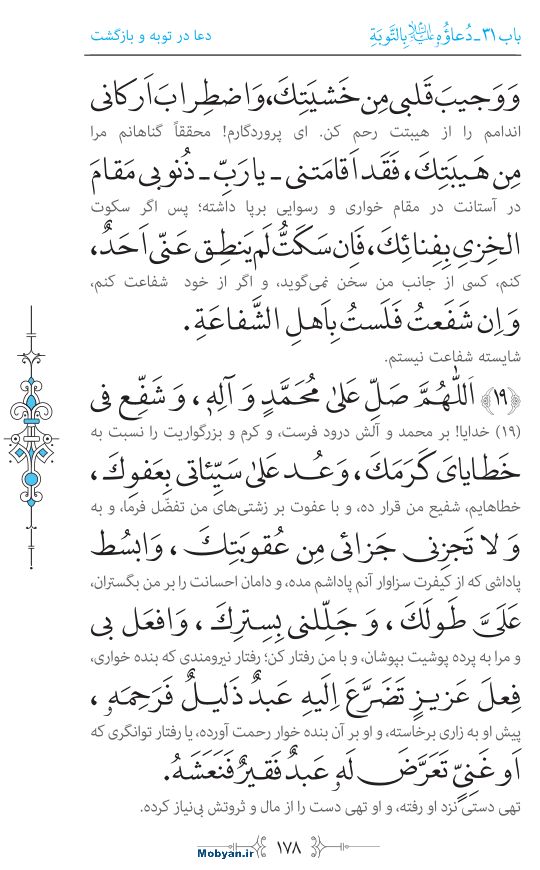 باب ۳۱ـ دُعاؤُهُ علیه‌السلام بِالتَّوبَةِ
دعا در توبه و بازگشت
وَ وَجیبَ قَلبی مِن خَشیَتِکَ، وَ اضطِرابَ اَرکانی
اندامم را از هیبتت رحم کن. ای پروردگارم! محققاً گناهانم مرا
مِن هَـیبَتِكَ، فَقَد اَقامَتنی ـ یا رَبِّ ـ ذُنوبی مَقامَ
در آستانت در مقام خواری و رسوایی برپا داشته؛ پس اگر سکوت
الخِزیِ بِفِنائِكَ، فَاِن سَکَتُّ لَم یَنطِق عَنّی اَحَدٌ،
کنم، کسی از جانب من سخن نمی‌گوید، و اگر از خود شفاعت کنم،
وَ اِن شَفَعتُ فَلَستُ بِاَهلِ الشَّفاعَةِ.
شایسته شفاعت نیستم.
﴿۱۹﴾ اَللّٰهُمَّ صَلِّ عَلیٰ مُحَمَّدٍ وَ آلِهٖ، وَ شَفِّع فی
(۱۹) خدایا! بر محمد و آلش درود فرست، و کرم و بزرگواریت را نسبت به
خَطایایَ کَرَمَكَ، وَ عُـد عَلیٰ سَیِّئاتی بِعَفوِكَ،
خطاهایم، شفیع من قرار ده، و با عفوت بر زشتی‌های من تفضّل فرما، و به
وَ لا تَجزِنی جَزائی مِن عُقوبَتِكَ، وَ ابسُط
پاداشی که از کیفرت سزاوار آنم پاداشم مده، و دامان احسانت را بر من بگستران،
عَلَیَّ طَولَكَ، وَ جَلِّلنی بِسِترِكَ، وَ افعَل بی
و مرا به پرده پوشیت بپوشان، و با من رفتار کن؛ رفتار نیرومندی که بنده خواری،
فِعلَ عَزیزٍ تَضَرَّعَ اِلَیهِ عَبدٌ ذَلیلٌ فَرَحِمَهٗ،
پیش او به زاری برخاسته، و او بر آن بنده خوار رحمت آورده، یا رفتار توانگری که
اَو غَنِیٍّ تَعَرَّضَ لَهٗ عَبدٌ فَقیرٌ فَنَعَشَهُ.
تهی دستی نزد او رفته، و او تهی دست را از مال و ثروتش بی‌نیاز کرده.
۱۷۸
Mobyan.ir